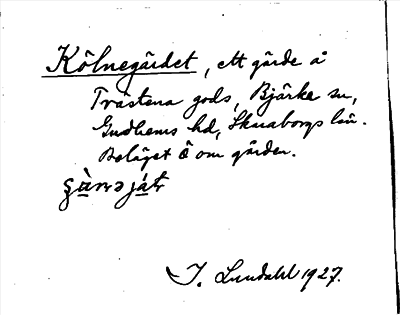 Kölnegärdet, ett gärde å
Trästena gods, Bjärka sn,
Gudhems hd, Skaraborgs län.
Beläget Ö om gården.
I. Lundahl 1927.